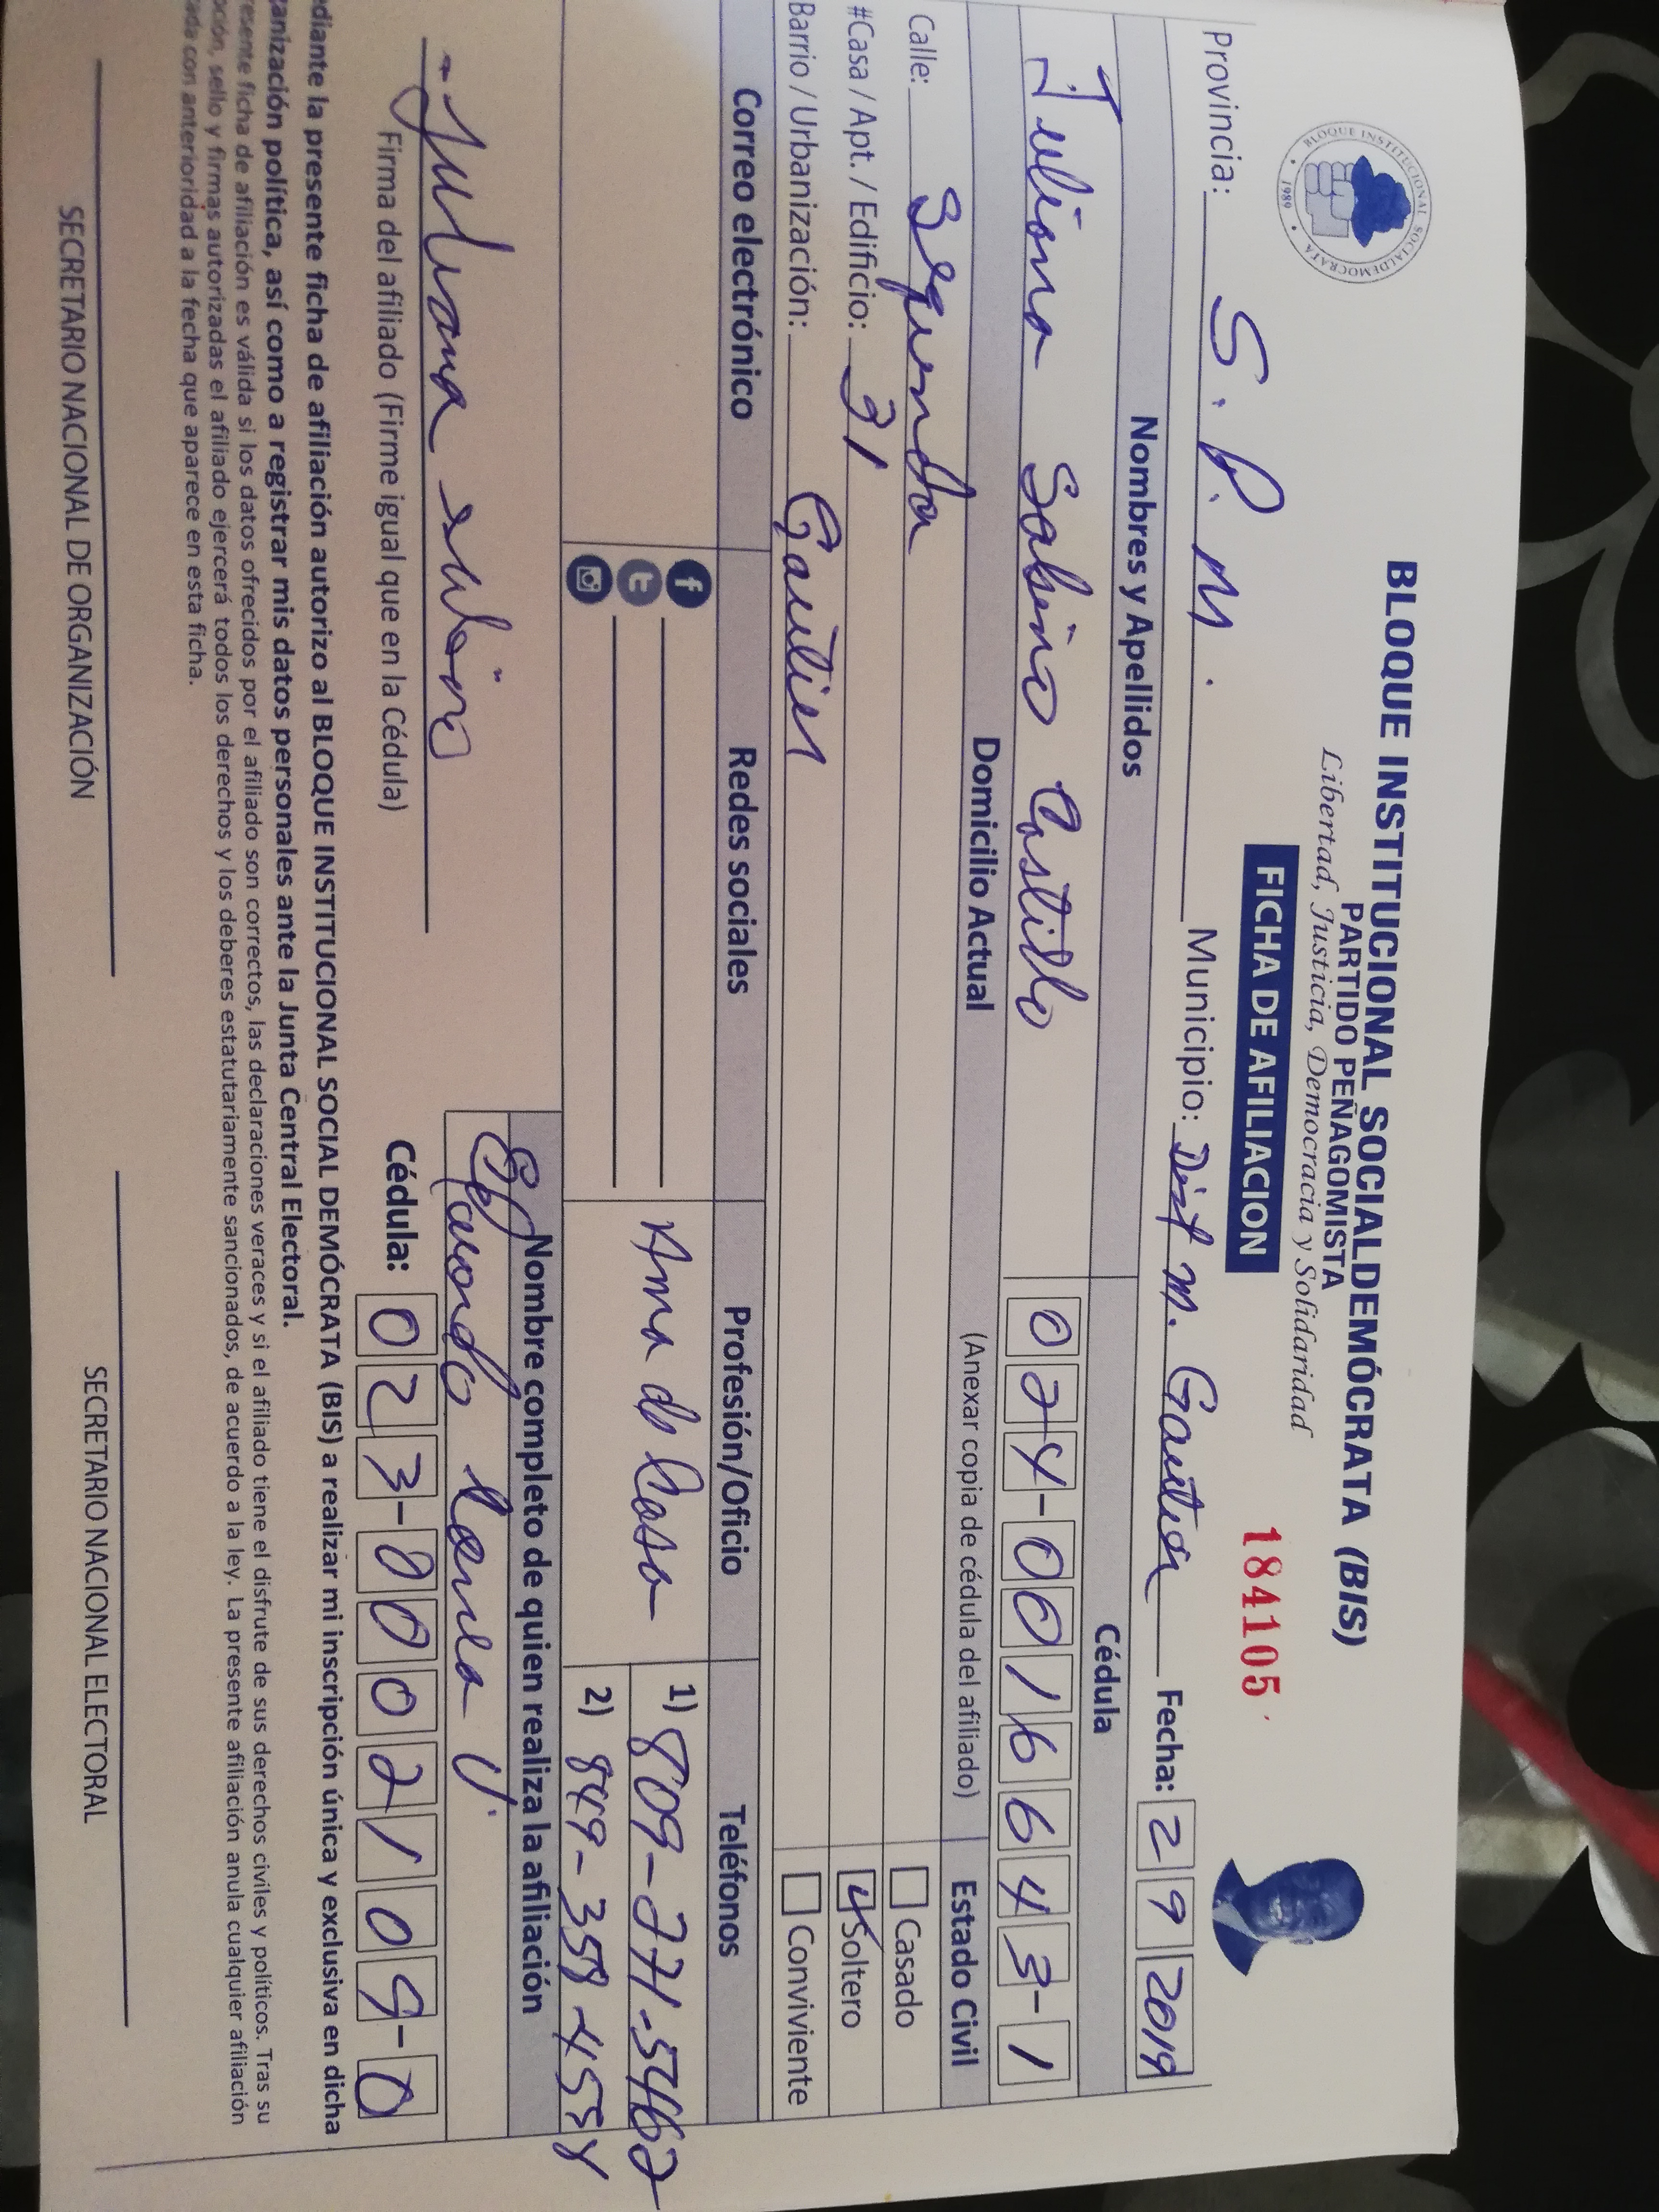 BLOQUE INSTITUCIONAL SOCIALDEMOCRATA
1989
BLOQUE INSTITUCIONAL SOCIALDEMÓCRATA (BIS)
PARTIDO PEÑAGOMISTA
Libertad, Justicia, Democracia y Solidaridad
FICHA DE AFILIACION
184105
Provincia: S. P. M. Municipio: Dist M. Gautier Fecha: 2 9 2019
Nombres y Apellidos Cédula
Juliana Sabino Castillo 024-0016643-1
Domicilio Actual (Anexar copia de cédula del afiliado) Estado Civil
Calle: Segunda Casado
#Casa / Apt. / Edificio: 31 Soltero
Barrio / Urbanización: Gautier Conviviente
Correo electrónico Redes sociales Profesión/Oficio Teléfonos
Ama de Casa 1) 809-771-5462
2) 849-358-455
Nombre completo de quien realiza la afiliación
Juliana sabino
Firma del afiliado (Firme igual que en la Cédula)
Cédula: 023-0002109-0
ediante la presente ficha de afiliación autorizo al BLOQUE INSTITUCIONAL SOCIAL DEMÓCRATA (BIS) a realizar mi inscripción única y exclusiva en dicha
ganización política, así como a registrar mis datos personales ante la Junta Central Electoral.
resente ficha de afiliación es válida si los datos ofrecidos por el afiliado son correctos, las declaraciones veraces y si el afiliado tiene el disfrute de sus derechos civiles y políticos. Tras su
oción, sello y firmas autorizadas el afiliado ejercerá todos los derechos y los deberes estatutariamente sancionados, de acuerdo a la ley. La presente afiliación anula cualquier afiliación
ada con anterioridad a la fecha que aparece en esta ficha.
SECRETARIO NACIONAL DE ORGANIZACIÓN SECRETARIO NACIONAL ELECTORAL